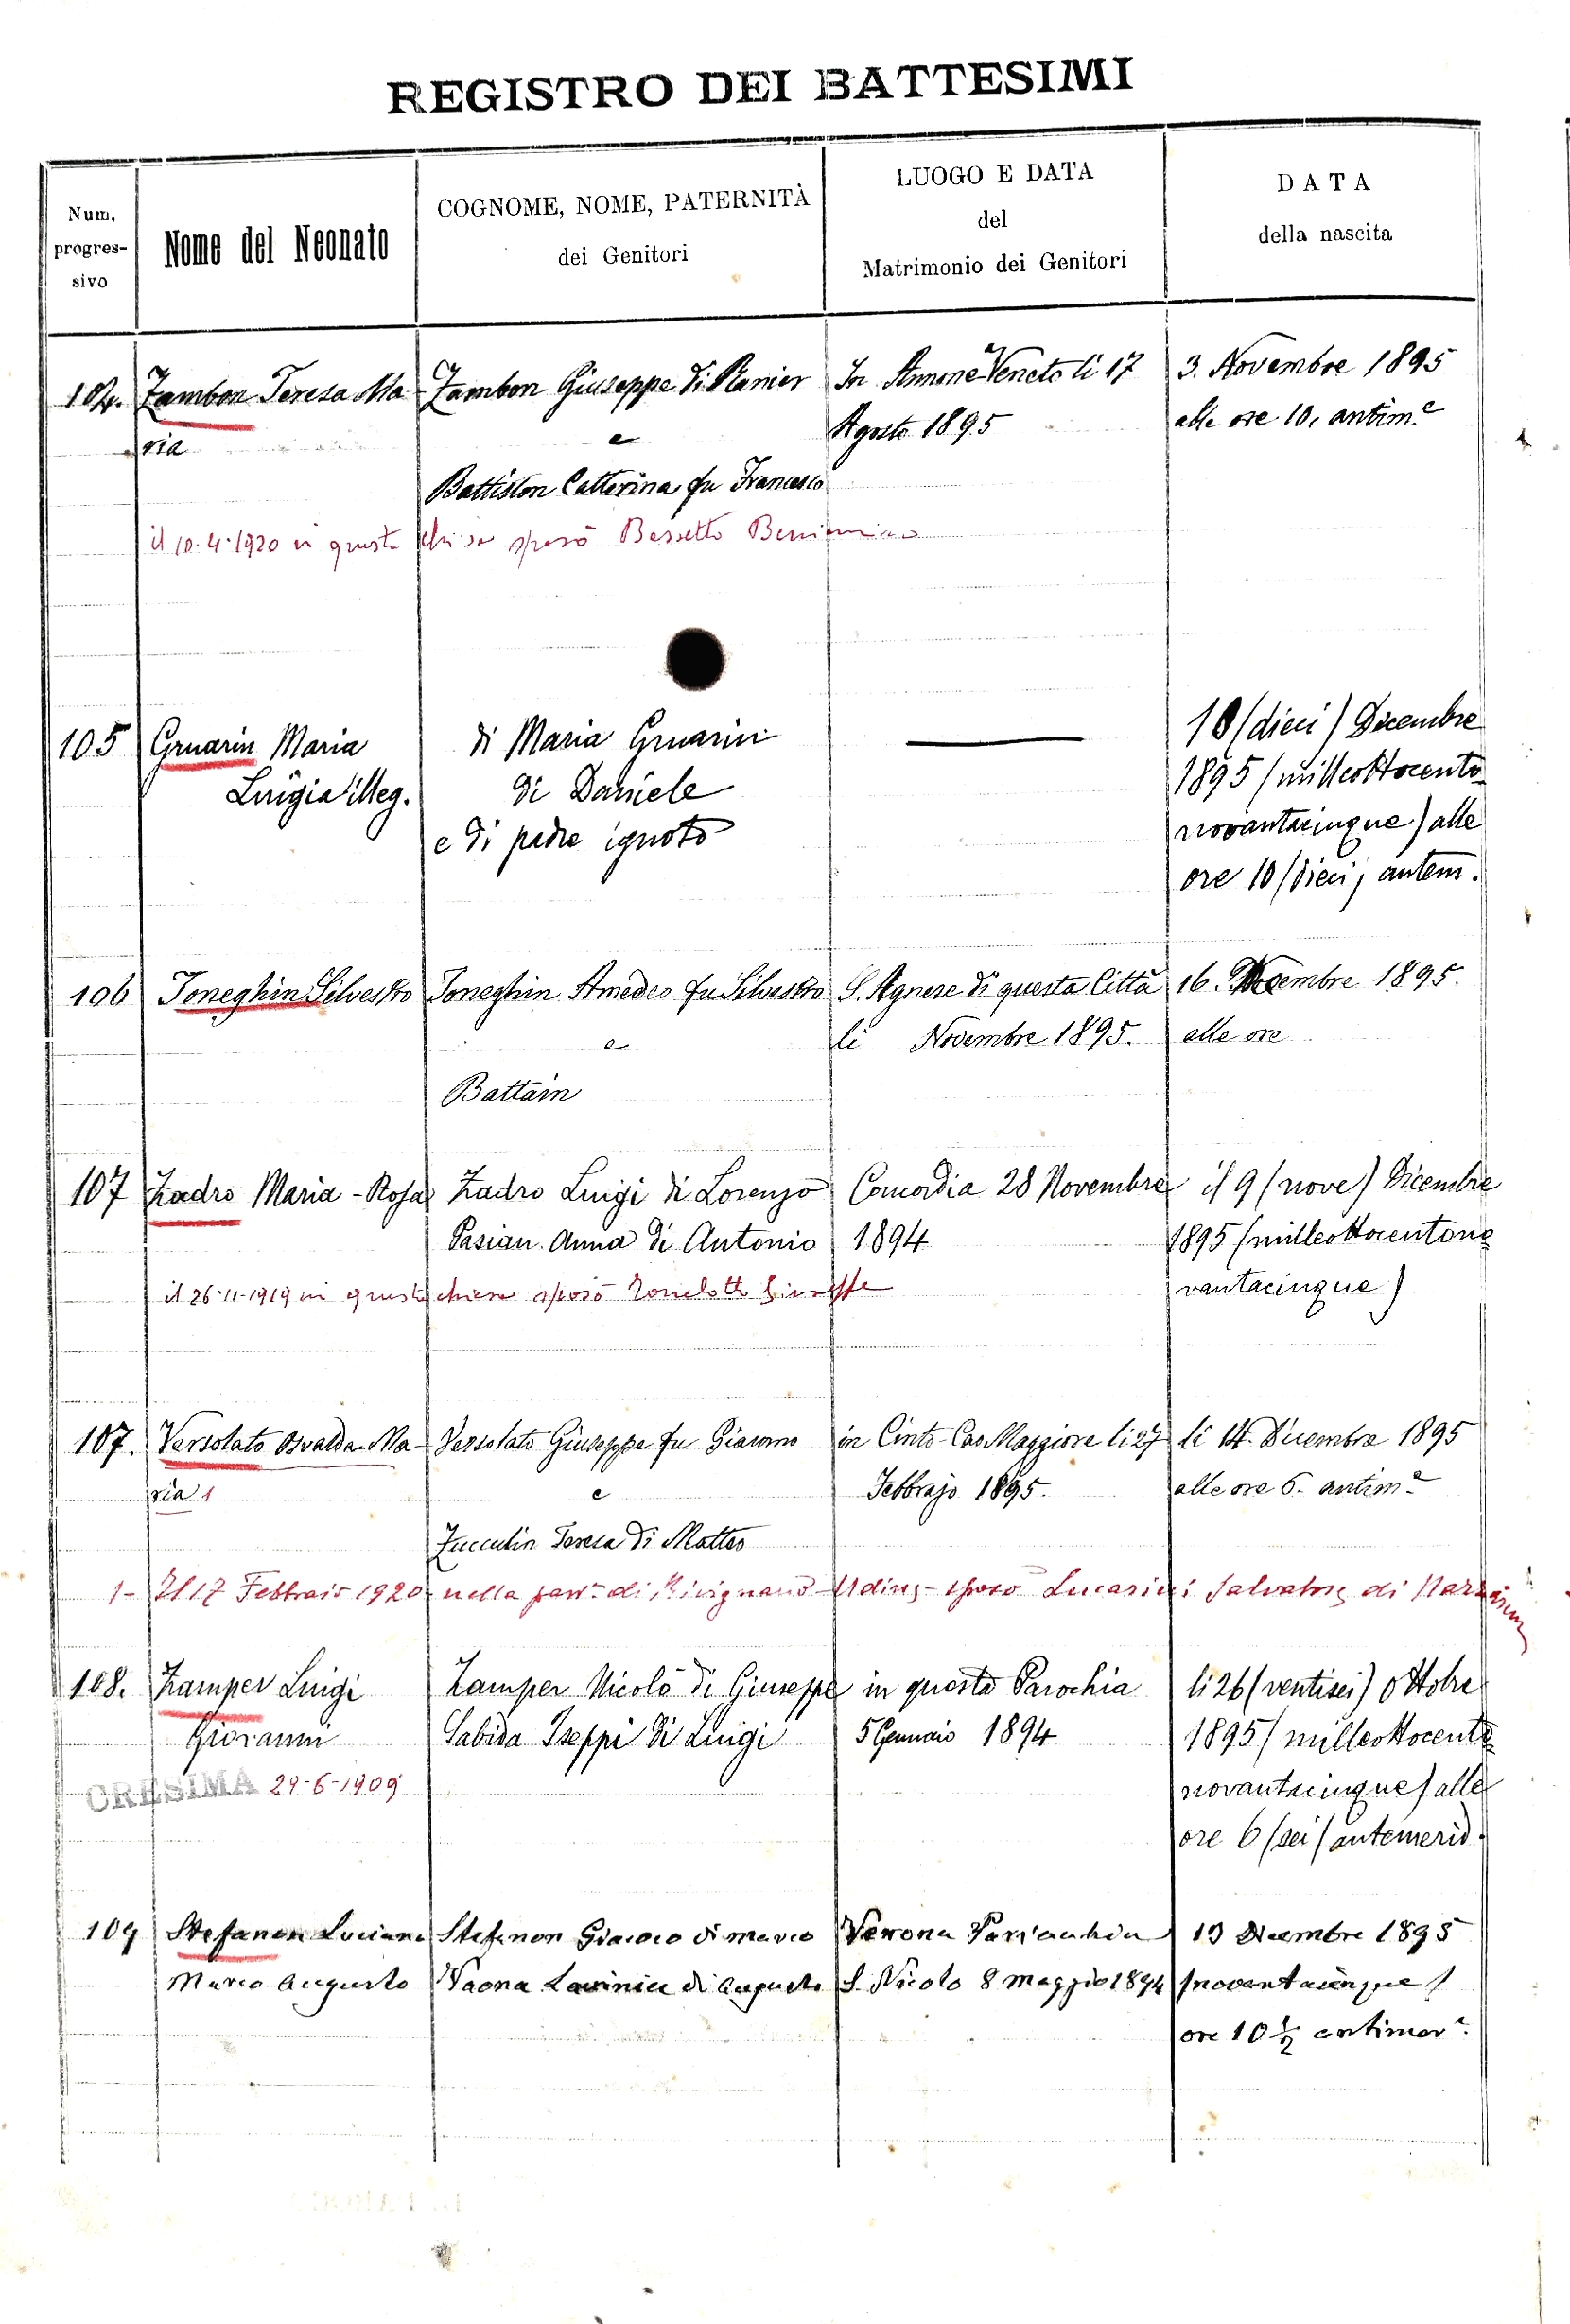 REGISTRO DEI BATTESIMI
Num. progres- sivo
Nome del Neonato
COGNOME, NOME, PATERNITÀ dei Genitori
LUOGO E DATA del Matrimonio dei Genitori
DATA della nascita
104. Zambon Teresa Ma Zambon Giuseppe di Ranier In Annone Veneto li 17 3. Novembre 1895
ria e Agosto 1895 alle ore 10, antim.e
Battiston Catterina fu Francesco
il 10.4.1920 in questa chiesa sposò Bessetto Beniamino
105 Gruarin Maria di Maria Gruarin 10 (dieci) Dicembre
Luigia illeg. di Daniele 1895 (milleottocento
e di padre ignoto novantacinque) alle
ore 10 (dieci) antem.
106 Toneghin Silvestro Toneghin Amedeo fu Silvestro S. Agnese di questa Città 16. Decembre 1895.
e li Novembre 1895. alle ore
Battain
107 Zadro Maria - Rosa Zadro Luigi di Lorenzo Concordia 28 Novembre il 9 (nove) Dicembre
Pasian Anna di Antonio 1894 1895 (milleottocentono
il 26-11-1919 in questa chiesa sposò vantacinque)
107. Versolato Osvalda-Ma- Versolato Giuseppe fu Giacomo in Cinto-CaoMaggiore li 27 li 14. Dicembre 1895
ria 1 e Febbrajo 1895. alle ore 6. antim.e
Zucculin Teresa di Matteo
1- Il 17 Febbraio 1920 nella parr. di Rivignano - Udine - sposò Lucarini Salvatore di
108. Zamper Luigi Zamper Nicolò di Giuseppe in questa Parochia li 26 (ventisei) Ottobre
Giovanni Sabida Iseppi di Luigi 5 Gennaio 1894 1895 (milleottocento
CRESIMA 29-6-1909 novantacinque) alle
ore 6 (sei) antemerid.
109 Stefanon Luciano Stefanon Giacomo di Marco Verona Parrochia 19 Decembre 1895
Marco Augusto Vaona Lavinia di Augusto S. Nicolo 8 Maggio 1894 (novantacinque)
ore 10 ½ antimer.e